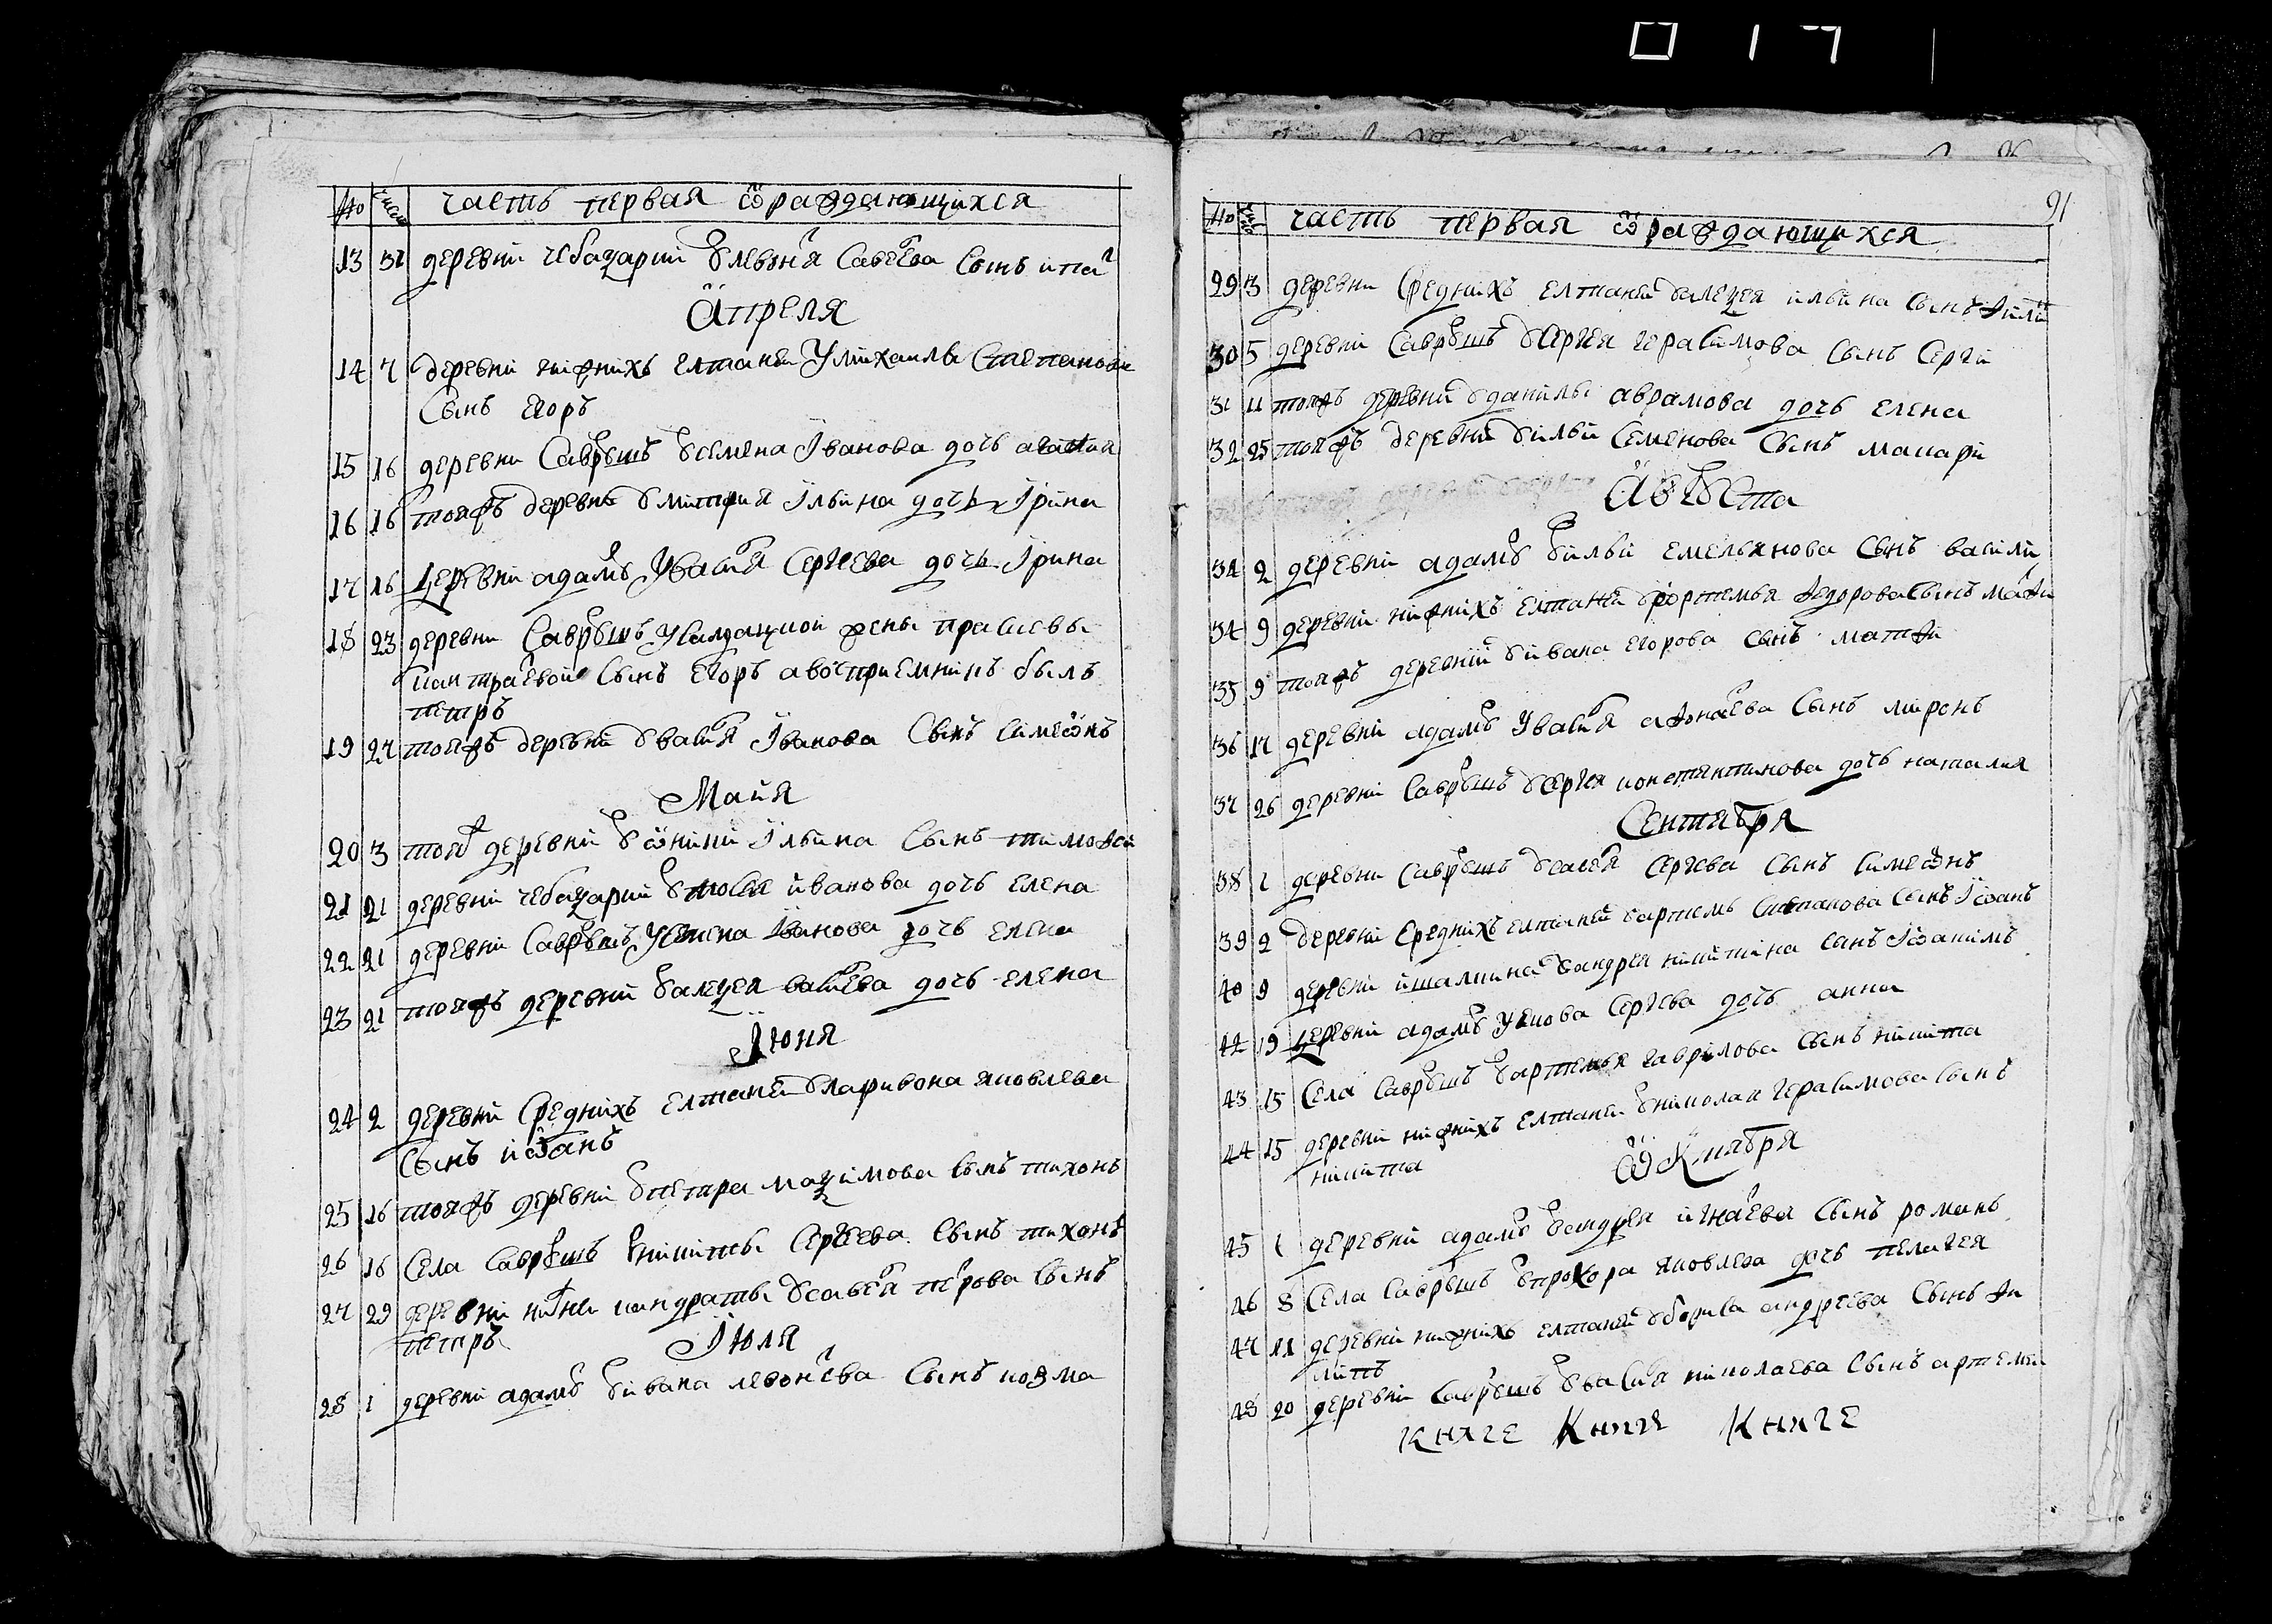 № число часть первая ѡ раждающихся
13 31 деревни чебазарии ꙋ левонтя савеева сынъ ипат
Апреля
14 7 деревни нижнихъ елтанеи у михаилы степанова
сынъ егоръ
15 16 деревни саврꙋшъ ꙋ семена Іванова дочь агафия
16 16 тояжъ деревни ꙋ митрия Ільина дочь Ірина
17 16 деревни адамъ у васия сергеева дочь Ірина
18 23 деревни саврꙋшъ у салдацкои жены
сынъ егоръ а воспри емникъ былъ
петръ
19 27 тояжъ деревни ꙋ васия Іванова сынъ симеѡнъ
Маия
20 3 тояж деревни ꙋ ѡники Ільина сынъ тимофеи
21 21 деревни чебазарии ꙋ иванова дочь елена
22 21 деревни саврꙋшъ у Іванова дочь елена
23 21 тояжъ деревни ꙋ алеѯея васиева дочь елена
Іюня
24 2 деревни среднихъ елтанеи ꙋ ларивона яковлева
сынъ иѡанъ
25 16 тояжъ деревни ꙋ петра маѯимова сынъ тихонъ
26 16 села саврꙋшъ ꙋ никиты сергеева сынъ тихонъ
27 29 деревни кандраты ꙋ савея перова сынъ
петръ
Іюля
28 1 деревни адамъ ꙋ ивана левонева сынъ козма
91
№ число часть первая ѡ раждающихся
29 3 деревни среднихъ елтанеи ꙋ алеѯея ильина сынъ
30 5 деревни саврꙋшъ ꙋ сергея герасимова сынъ серги
31 11 тояжъ деревни ꙋ данилы аврамова дочь елена
32 25 тояжъ деревни ꙋ ильи семенова сынъ макари
Августа
34 2 деревни адамъ ꙋ ильи емельянова сынъ васили
34 9 деревни нижнихъ елтанеи ꙋ федорова сынъ
35 9 тояжъ деревни ꙋ ивана егорова сынъ матфи
36 17 деревни адамъ у васия афонаева сынъ миронъ
37 26 деревни саврꙋшъ ꙋ сергея констянтинова дочь наталия
Сентября
38 1 деревни саврꙋшъ ꙋ савея сергева сынъ симеѡнъ
39 2 деревни среднихъ елтанеи ꙋ артемь степанова сынъ Іѡанъ
40 9 деревни ишалкина ꙋ андрея никитина сынъ Іѡакимъ
42 19 деревни адамъ у якова сергева дочь анна
43 15 села саврꙋшъ ꙋ артемья гаврилова сынъ никита
44 15 деревни нижнихъ елтанеи ꙋ николая герасимова сынъ
никита
Ѡктября
45 1 деревни адамъ ꙋ андрея игнаева сынъ романъ
46 8 села саврꙋшъ ꙋ прохора яковлева дочь пелагея
47 11 деревни нижнихъ елтанеи ꙋ бориса андреева сынъ фи
липъ
48 20 деревни саврꙋшъ ꙋ васия николаева сынъ артемеи
книге книгя книге